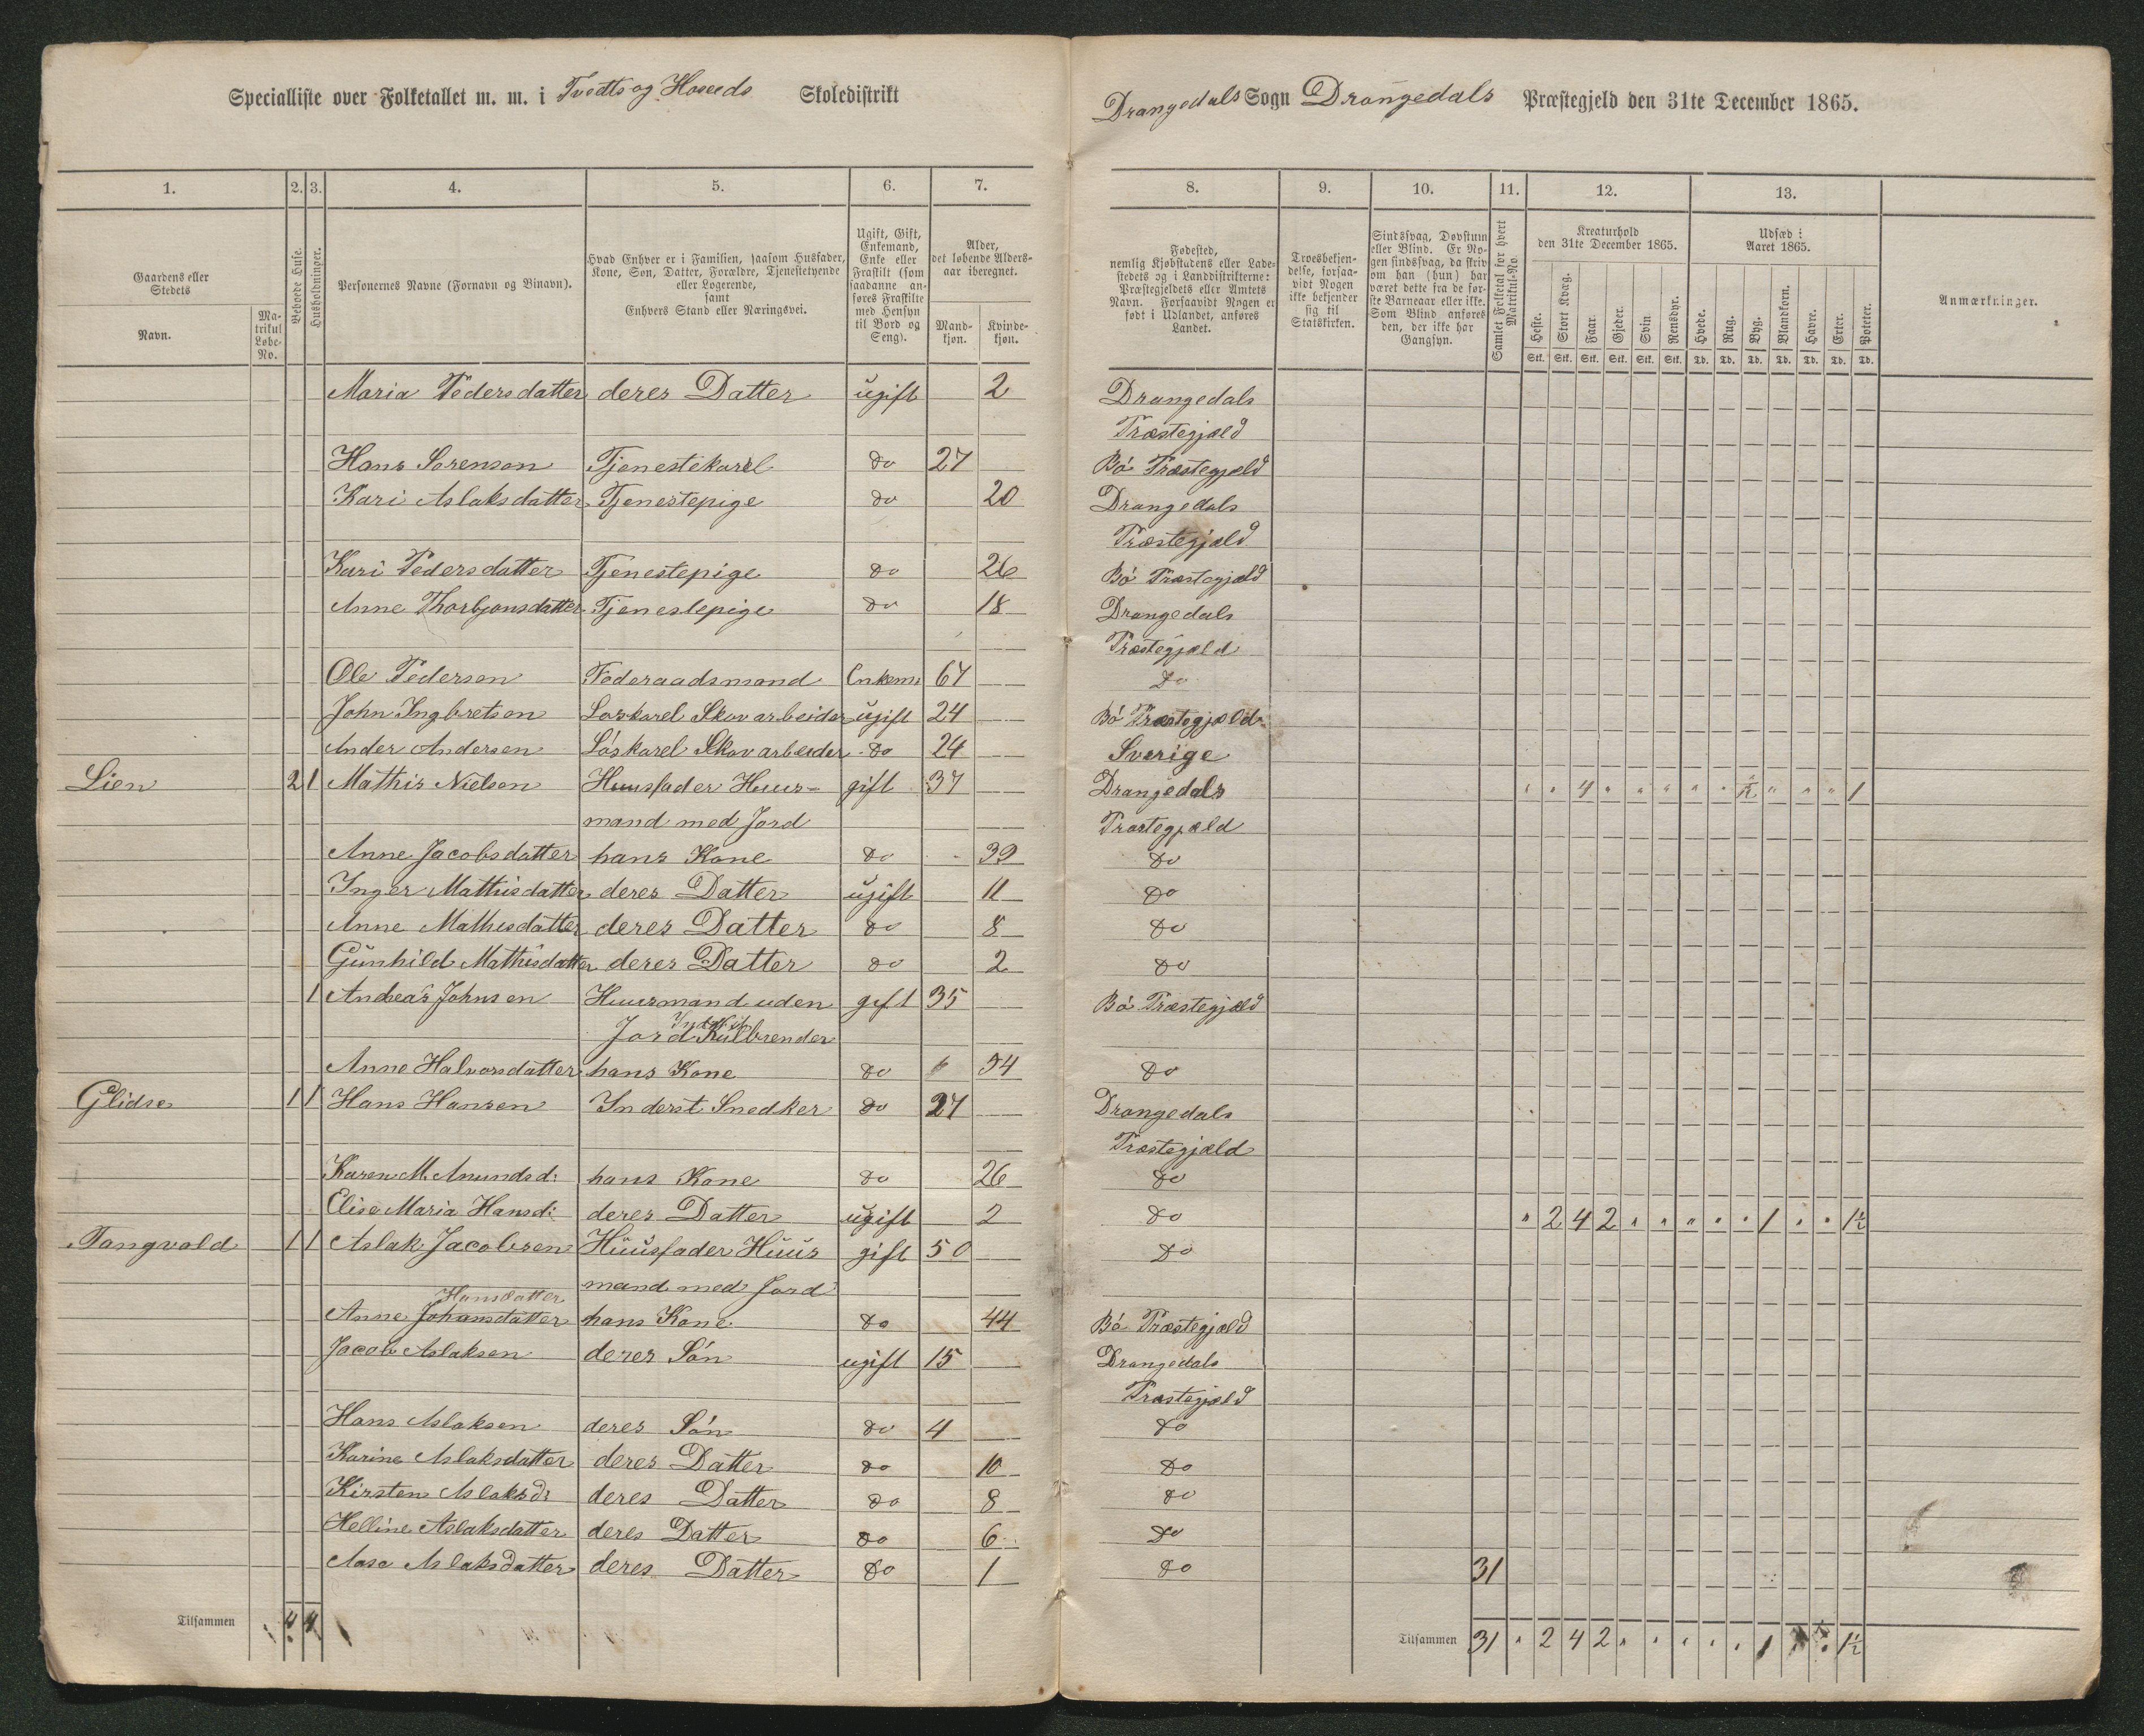 Specialliste over Folketallet m. m. i Tvedts og Hoseeds Skoledistrikt
Drangedals Sogn Drangedals Præstegjeld den 31te December 1865.
1. 2. 3. 4. 5. 6. 7. 8. 9. 10. 11. 12. 13.
Gaardens eller Stedets
Navn.
Matrikul Løbe-No.
Beboede Huse.
Husholdninger.
Personernes Navne (Fornavn og Binavn).
Hvad Enhver er i Familien, saasom Husfader, Kone, Søn, Datter, Forældre, Tjenestetyende eller Logerende, samt Enhvers Stand eller Næringsvei.
Ugift, Gift, Enkemand, Enke eller Fraskilt (som saadanne anføres Fraskilte med Hensyn til Bord og Seng).
Alder, det løbende Aldersaar iberegnet.
Mandkjøn.
Kvindekjøn.
Fødested, nemlig Kjøbstadens eller Ladestedets og i Landdistrikterne: Præstegjeldets eller Amtets Navn. Forsaavidt Nogen er født i Udlandet, anføres Landet.
Troesbekjendelse, forsaavidt Nogen ikke bekjender sig til Statskirken.
Sindssvag, Døvstum eller Blind. Er Nogen sindssvag, da skriv om han (hun) har været dette fra de første Barneaar eller ikke. Som Blind anføres den, der ikke har Gangsyn.
Samlet Folketal for hvert Matrikul-No.
Kreaturhold den 31te December 1865.
Heste. Stort Kvæg. Faar. Gjeder. Svin. Rensdyr.
Stk. Stk. Stk. Stk. Stk. Stk.
Udsæd i Aaret 1865.
Hvede. Rug. Byg. Blandkorn. Havre. Erter. Poteter.
Td. Td. Td. Td. Td. Td. Td.
Anmærkninger.
Maria Pedersdatter deres Datter ugift 2 Drangedals
Præstegjæld
Hans Sørenson Tjenestekarel do 27 Bó Præstegjæld
Kari Aslaksdatter Tjenestepige do 20 Drangedals
Præstegjæld
Kari Pedersdatter Tjenestepige do 26 Bó Præstegjæld
Anne Thorbjonsdatter Tjenestepige do 18 Drangedals
Præstegjæld
Ole Pederson Føderaadsmand Enkem: 67 do
John Ingbretson Løskarel Skovarbeider ugift 24 Bó Præstegjæld
Ander Andersen Lóskarel Skovarbeider do 24 Sverige
Lien 2 1 Mathis Nielson Huusfader Huus- gift 37 Drangedals " " 4 " " " " " " " " 1
mand med Jord Præstegjæld
Anne Jacobsdatter hans Kone do 39 do
Inger Mathisdatter deres Datter ugift 11 do
Anne Mathisdatter deres Datter do 8 do
Günhild Mathisdatter deres Datter do 2 do
1 Andreas Johnsen Huusmand uden gift 35 Bó Præstegjæld
Jord Külbrender
Anne Halvorsdatter hans Kone do 54 do
Glidse 1 1 Hans Hansen Inderst Snedker do 27 Drangedals
Præstegjæld
Karen M. Anundsd: hans Kone do 26 do
Elise Maria Hansd: deres Datter ugift 2 do " 2 4 2 " " " " " 1 " " 1½
Tangvald 1 1 Aslak Jacobsen Hüüsfader Hüüs gift 50 do
mand med Jord
Hansdatter
Anne Johansdatter hans Kone do 44 Bó Præstegjæld
Jacob Aslaksen deres Són ugift 15 Drangedals
Præstegjæld
Hans Aslaksen deres Són do 4 do
Karine Aslaksdatter deres Datter do 10 do
Kirsten Aslaksd: deres Datter do 8 do
Helline Aslaksdatter deres Datter do 6 do
Aase Aslaksdatter deres Datter do 1 do 31
Tilsammen 4 4
Tilsammen 31 " 2 4 2 " " " " " 1 " " 1½